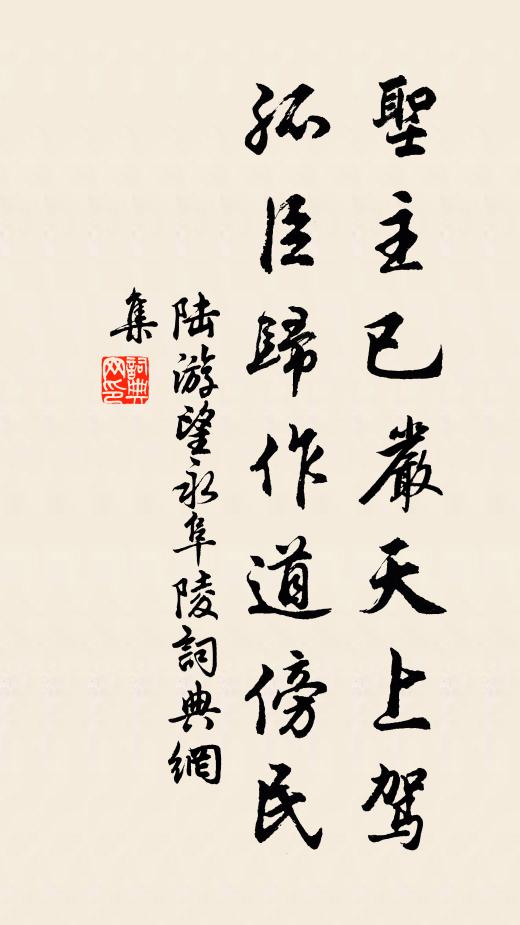 聖主已嚴天上駕
孤臣歸作道傍民
陸游望永阜陵詞典網
集
詞典網印